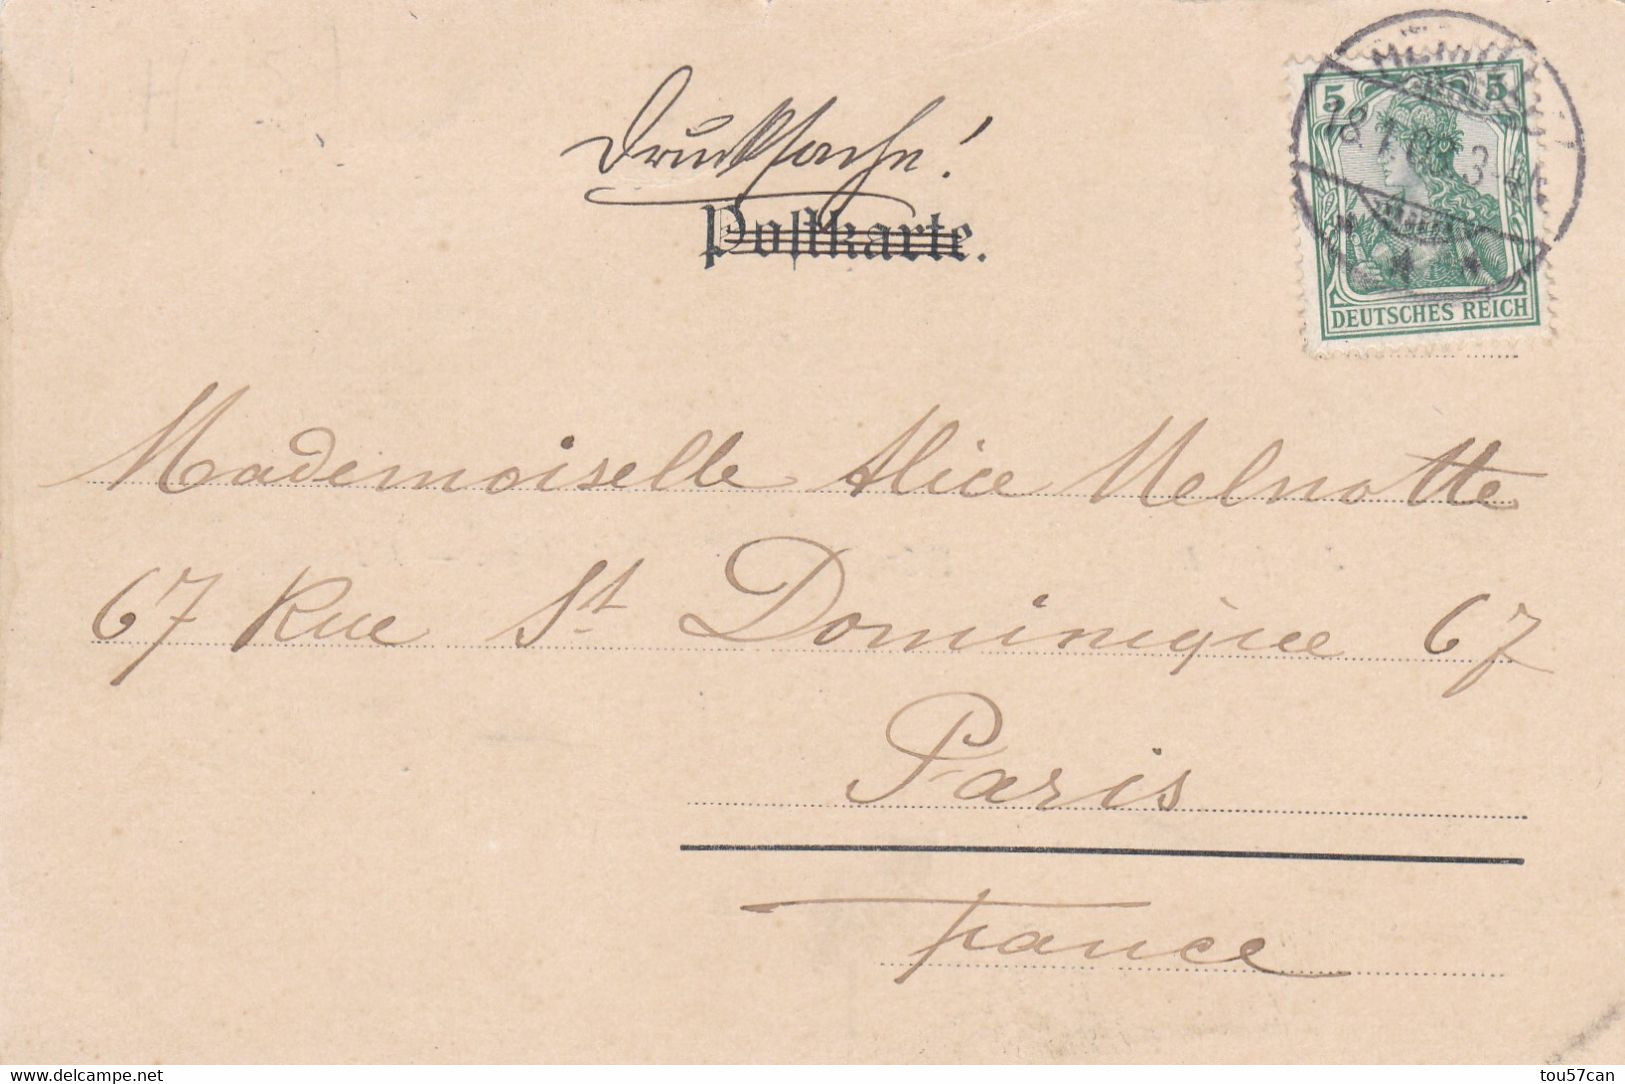 Drucksache!
Postkarte.
5 5
DEUTSCHES REICH
Mademoiselle Alice Melnotte
67 Rue St Dominique 67
Paris
France
www.delcampe.net
tou57can